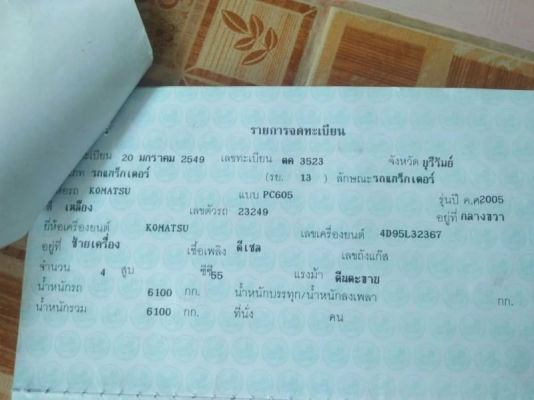 รายการจดทะเบียน
ทะเบียน 20 มกราคม 2549 เลขทะเบียน ตค 3523 จังหวัด บุรีรัมย์
รถแทร็กเตอร์ (รย. 13 ) ลักษณะ รถแทร็กเตอร์
KOMATSU แบบ PC605 รุ่นปี ค.ศ2005
สี เหลือง เลขตัวรถ 23249 อยู่ที่ กลางขวา
ยี่ห้อเครื่องยนต์ KOMATSU เลขเครื่องยนต์ 4D95L32367
อยู่ที่ ซ้ายเครื่อง เชื้อเพลิง ดีเซล เลขถังแก๊ส
จำนวน 4 สูบ ซีซี 55 แรงม้า ตีนตะขาบ
น้ำหนักรถ 6100 กก. น้ำหนักบรรทุก/น้ำหนักลงเพลา กก.
น้ำหนักรวม 6100 กก. ที่นั่ง คน